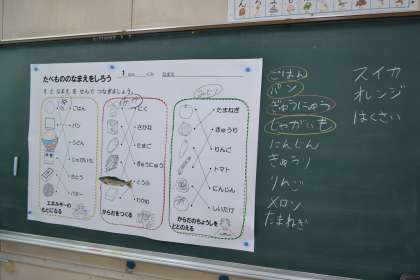 たべもののなまえをしろう
1 ねん くみ なまえ
え と なまえ を せんで つなぎましょう。
ごはん
パン
うどん
じゃがいも
さとう
バター
エネルギーの
もとになる
にく
さかな
たまご
ぎゅうにゅう
とうふ
わかめ
からだをつくる
たまねぎ
きゅうり
りんご
トマト
にんじん
しいたけ
からだのちょうしを
ととのえる
ごはん
パン
ぎゅうにゅう
じゃがいも
にんじん
きゅうり
りんご
メロン
たまねぎ
スイカ
オレンジ
はくさい